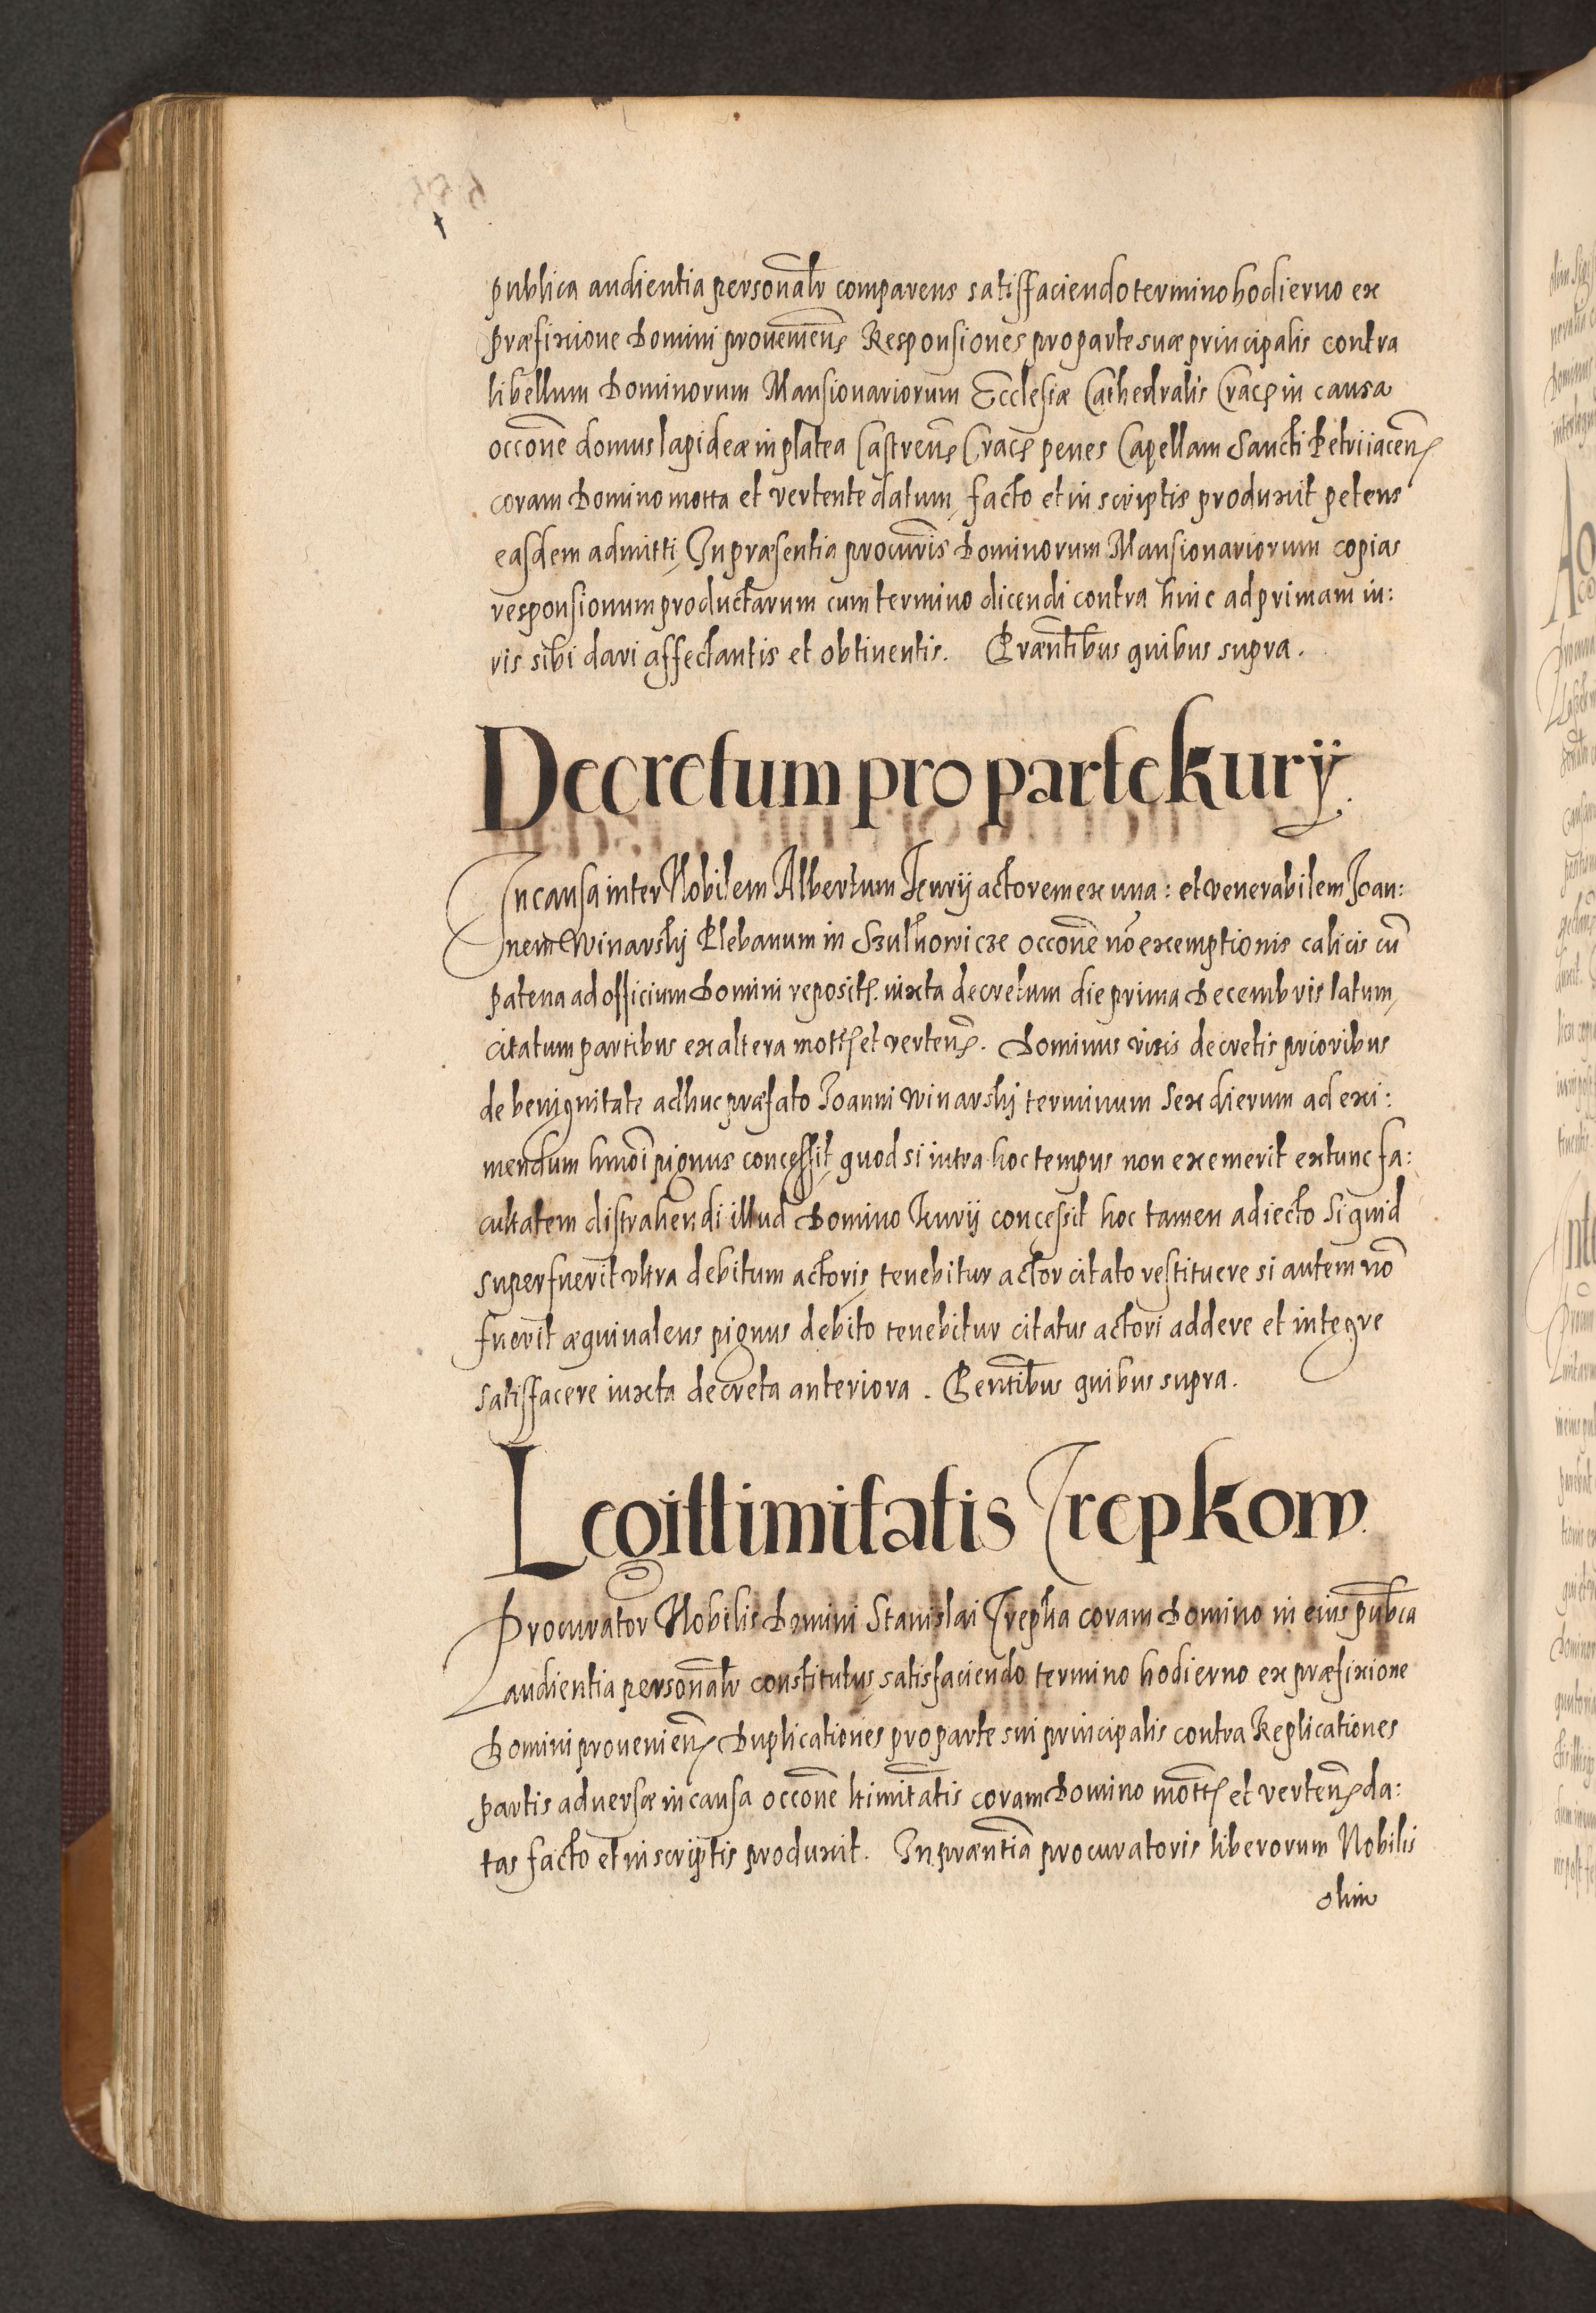 publica audientia personalr comparens satisffaciendo termino hodierno ex
præfixione Domini proveniens Responsiones pro parte suæ principalis contra
libellum Dominorum Mansionariorum Ecclesiæ Cathedralis Crac in causa
occone domus lapideæ in platea Castrens Crac penes Capellam Sancti Petri iacen
coram Domino mota et vertente datum, facto et in scriptis produxit petens
easdem admitti, In præsentia procuris Dominorum Mansionariorum copias
responsionum productarum cum termino dicendi contra hinc ad primam iu:
ris sibi dari affectantis et obtinentis. Præntibus quibus supra.
Decretum pro parte Kurÿ.
In causa inter Nobilem Albertum Kurij actorem ex una: et venerabilem Joan:
nem Winarskj Plebanum in Szulhowicze occone no exemptionis calicis cu
patena ad officium Domini reposit. iuxta decretum die prima Decembris latum,
citatum partibus ex altera mott et verten. Dominus visis decretis prioribus
de benignitate adhuc præfato Joanni Winarskj terminum sex dierum ad exi:
mendum hmoi pignus concessit, quod si intra hoc tempus non exemerit extunc fa:
cultatem distrahendi illud Domino Kurij concessit hoc tamen adiecto Si quid
superfuerit ultra debitum actoris, tenebitur actor citato restituere si autem no
fuerit æquivalens pignus debito tenebitur citatus actori addere et integre
satisffacere iuxta decreta anteriora. Pentibus quibus supra.
Legittimitatis Trepkow.
Procurator Nobilis Domini Stanislai Trepka coram Domino in eius publca
audientia personalr constitutus, satisfaciendo termino hodierno ex præfixione
Domini provenien Duplicationes pro parte sui principalis contra Replicationes
partis adversæ in causa occone ltimitatis coram Domino mott et verten da:
tas facto et in scriptis produxit. In præntia procuratoris liberorum Nobilis
olim